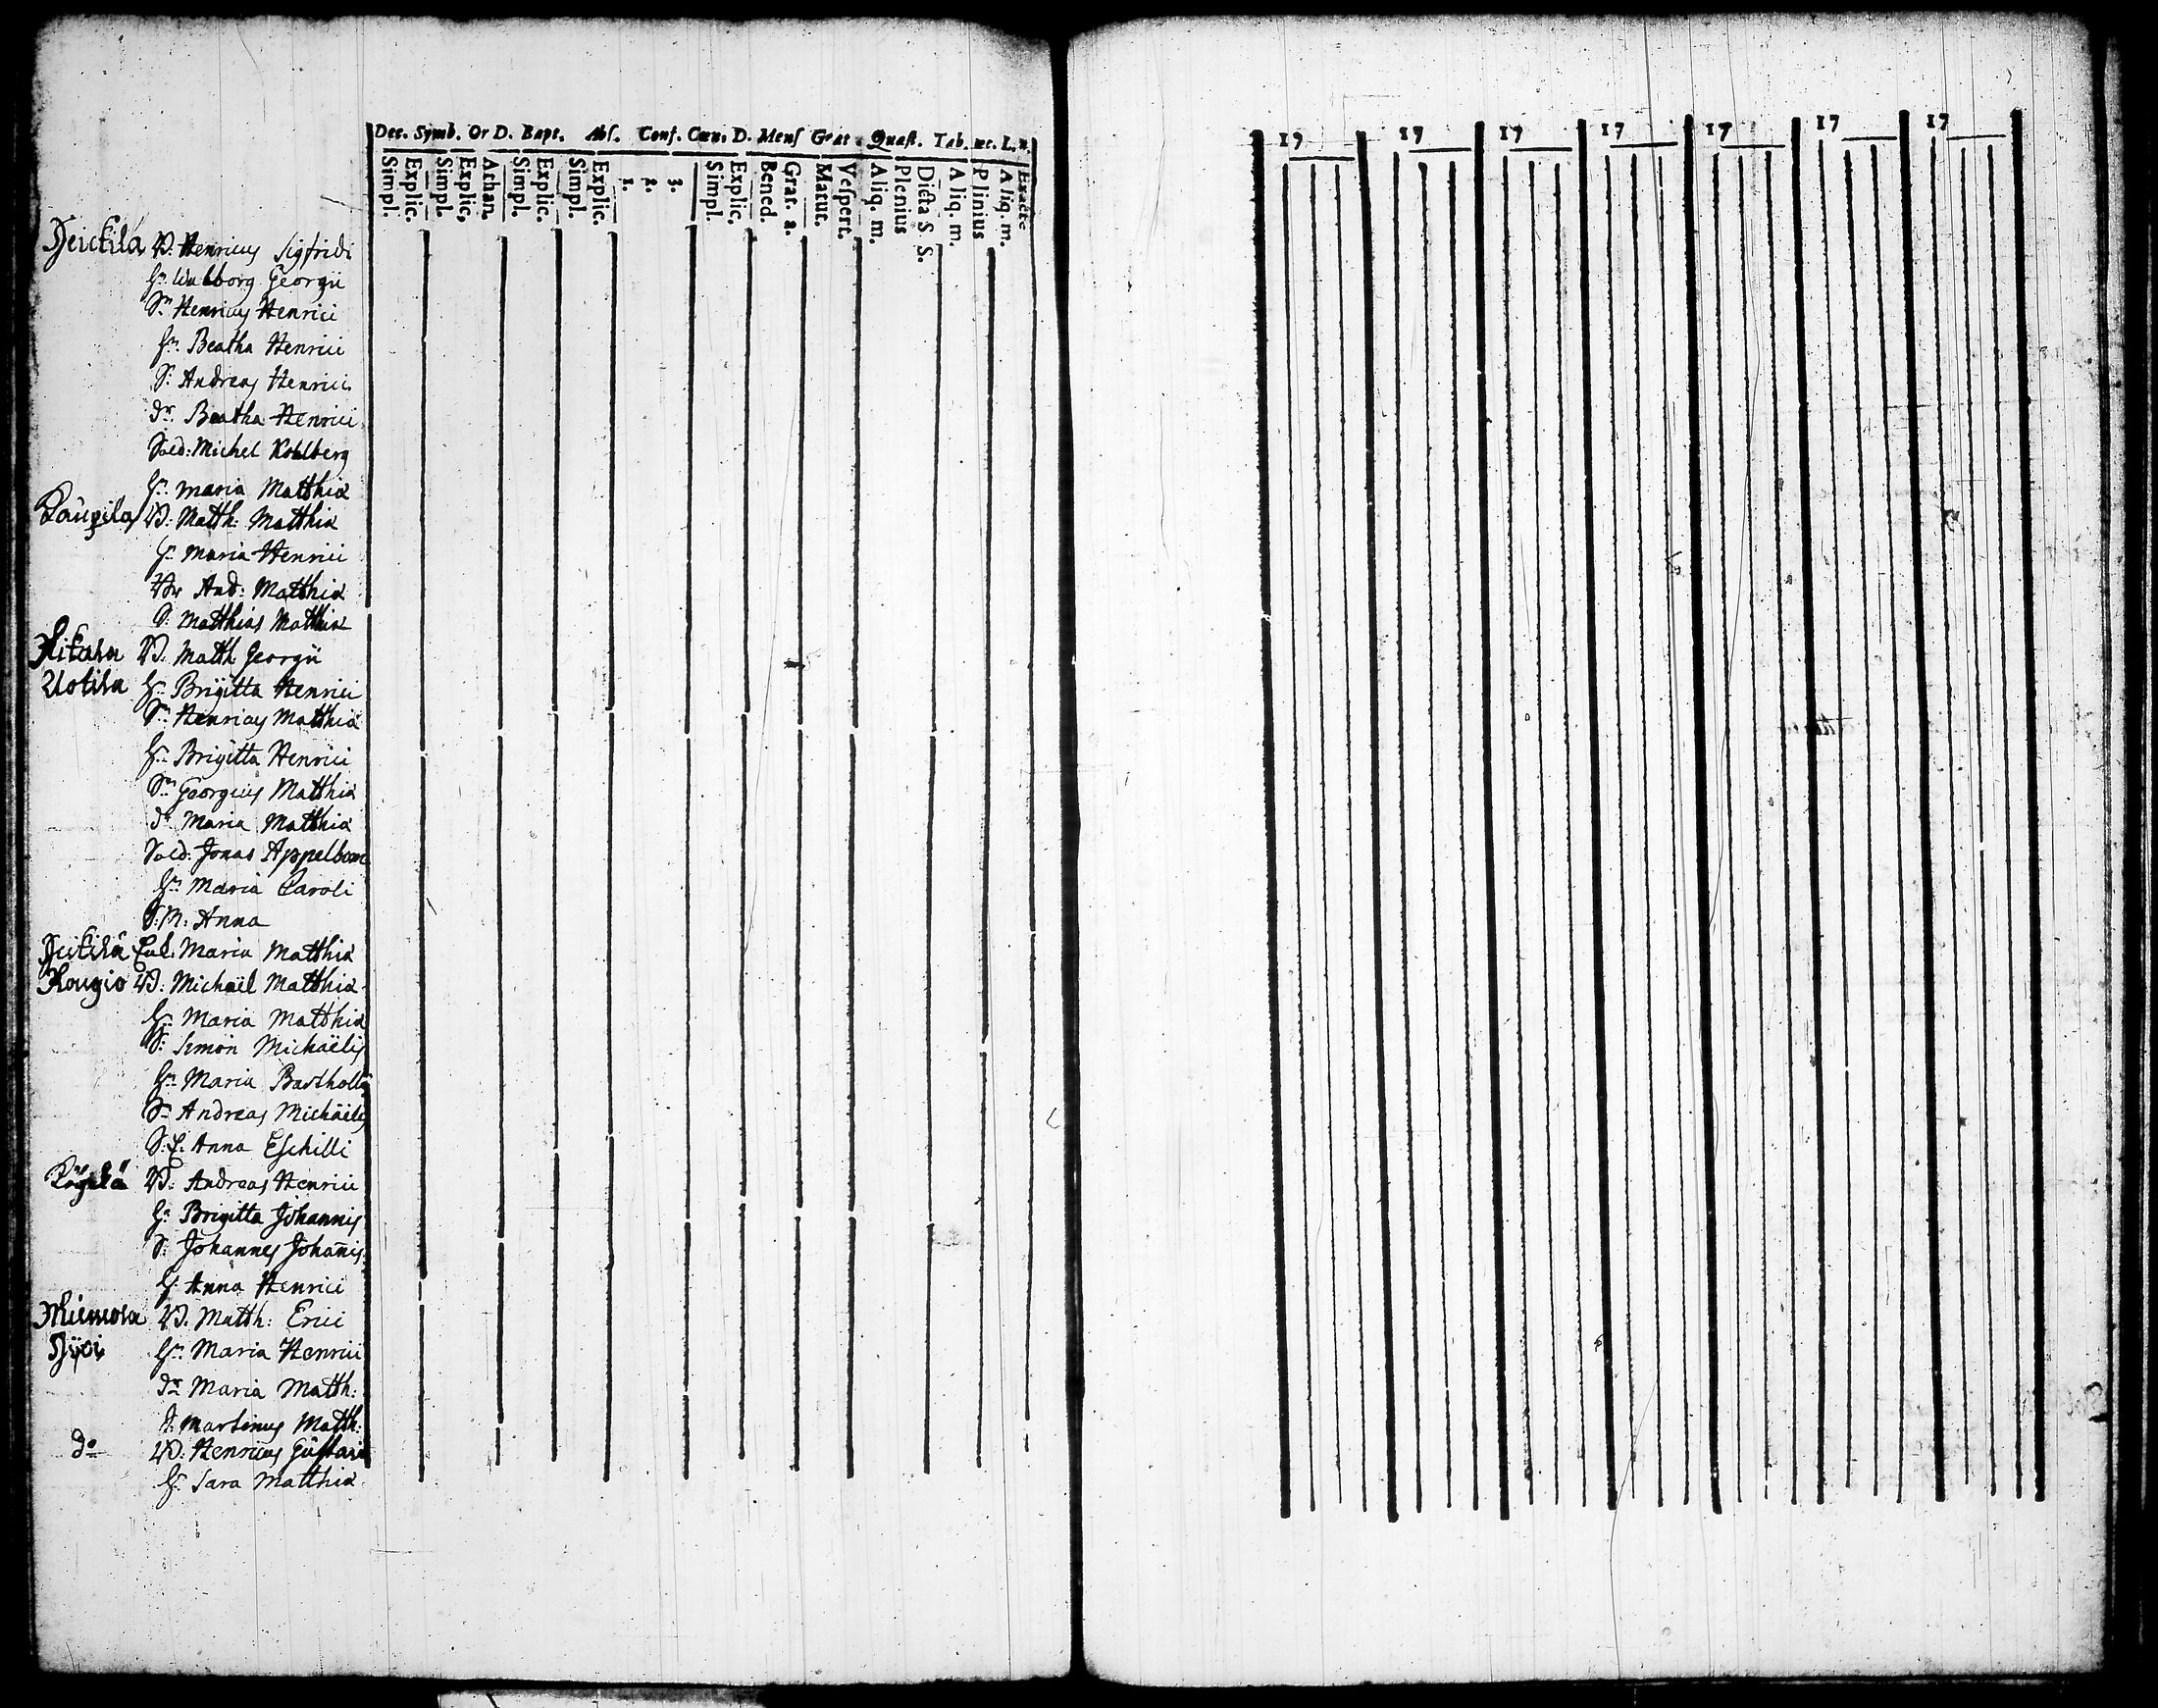 Dec. Symb. Or D. Bapt. Abs. Conf. Cœn. D. Mens Grat. Quæst. Tab. œc. L. n.
Simpl. Explic. Simpl. Explic. Athan. Simpl. Explic. Simpl. Explic. 1. 2. 3. Simpl. Explic. Bened. Grat. a. Matut. Vespert. Aliq. m. Plenius Dicta S. S. Aliq. m. Plinius Aliq. m. Exacte
17 17 17 17 17 17 17
Henricus Sigfridi
Hu. Walborg Georgii
Sn. Henricus Henrici
Hu. Beatha Henrici
S: Andreas Henrici
dr. Beatha Henrici
Sold: Michel Kohlberg
Hu. Maria Matthiæ
Kaupila Matth: Matthiæ
Hu. Maria Henrici
And: Matthiæ
S: Matthias Matthiæ
Matth Georgii
Uotila Hu. Brigitta Henrici
Sn. Henricus Matthiæ
Hu. Brigitta Henrici
Sn. Georgius Matthiæ
dr. Maria Matthiæ
Sold: Jonas Appelbom
Hu. Maria Caroli
S: M: Anna
Maria Matthiæ
Michaël Matthiæ
Hu. Maria Matthiæ
S: Simon Michaëlis
Hu. Maria Bartholl
Sn. Andreas Michaëlis
Anna Eschilli
Andreas Henrici
Hu. Brigitta Johannis
S: Johannes Johañis
Hu. Anna Henrici
Matth: Erici
Hu. Maria Henrici
dr. Maria Matth:
S. Martinus Matth:
do Henricus Gustavi
Hu. Sara Matthiæ